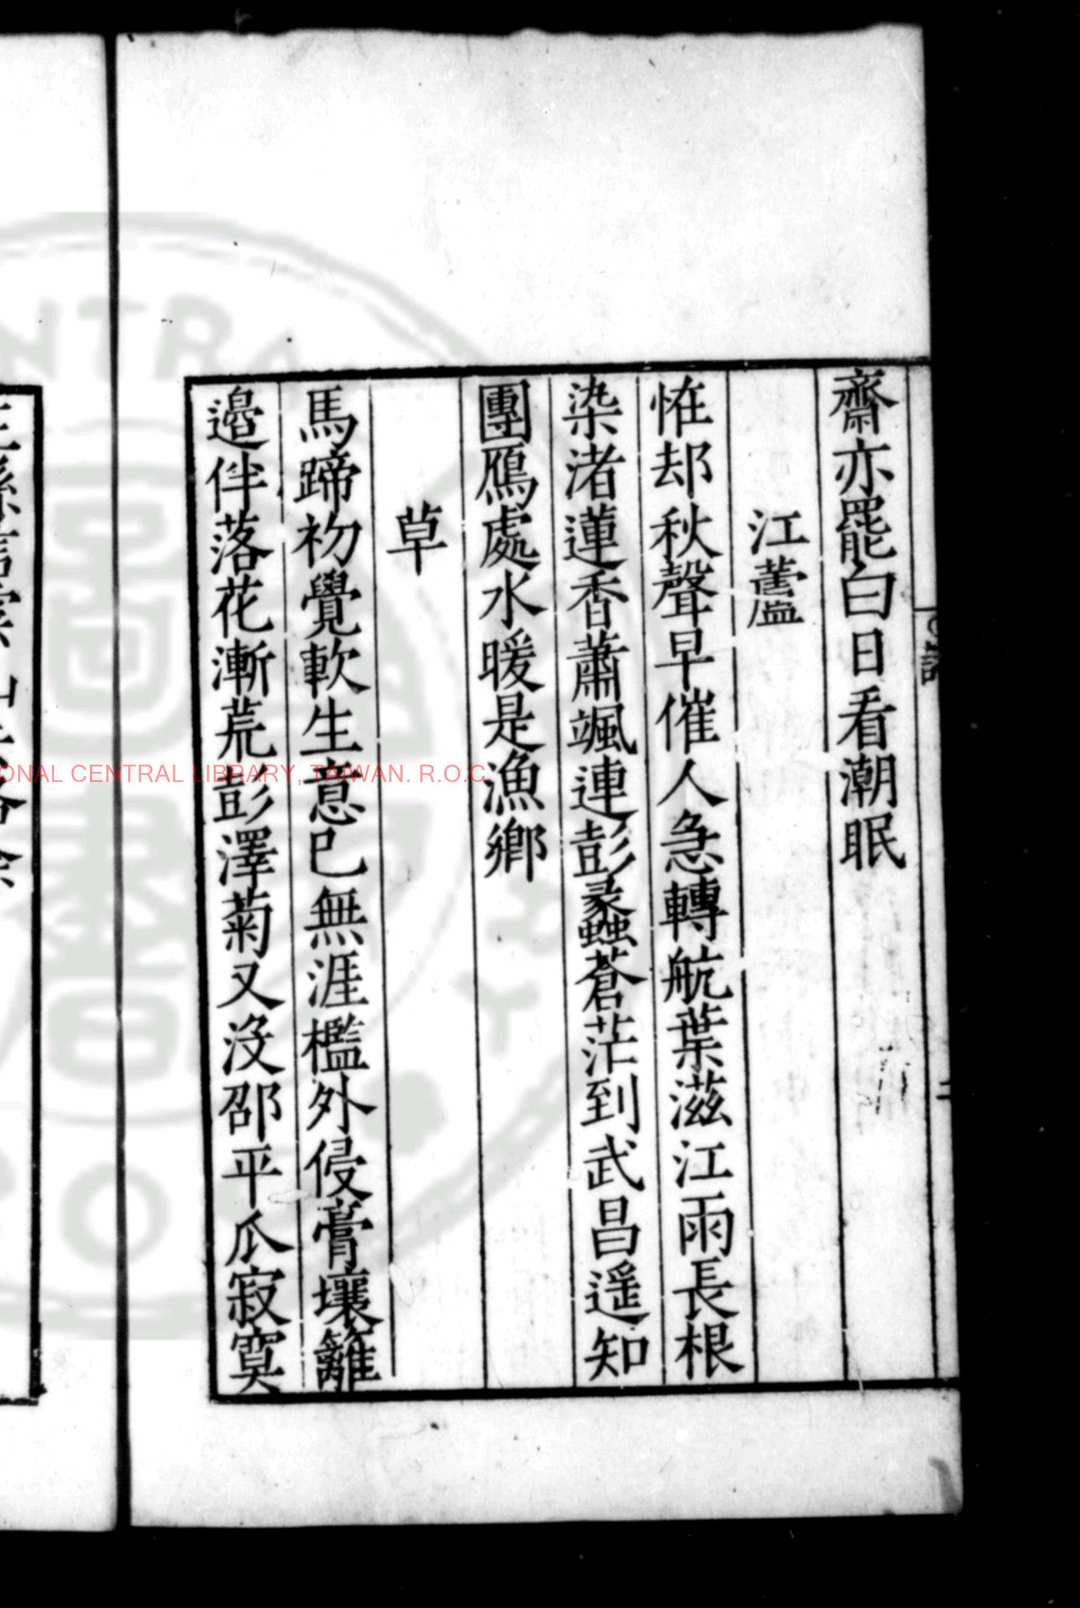 齋亦罷白日看潮眠
江蘆
恠却秋聲早催人急轉航葉滋江雨長根
染渚蓮香蕭颯連彭蠡蒼茫到武昌遥知
團鴈處水暖是漁鄉
草
馬蹄初覺軟生意已無涯檻外侵膏壤籬
邉伴落花漸荒彭澤菊又沒邵平瓜寂寞
ONAL CENTRAL LIBRARY, TAIWAN. R.O.C